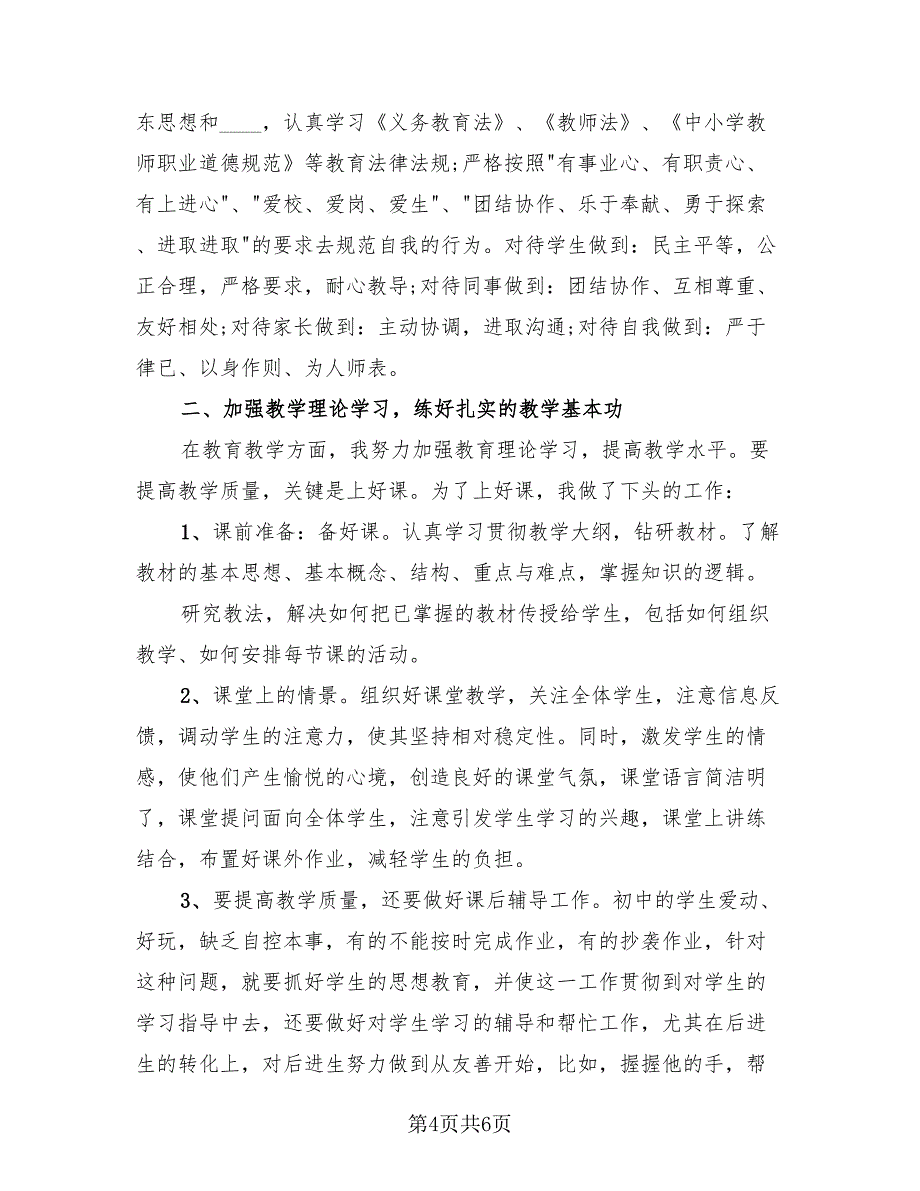 东思想和____，认真学习《义务教育法》、《教师法》、《中小学教
师职业道德规范》等教育法律法规;严格按照"有事业心、有职责心、
有上进心"、"爱校、爱岗、爱生"、"团结协作、乐于奉献、勇于探索
、进取进取"的要求去规范自我的行为。对待学生做到：民主平等，公
正合理，严格要求，耐心教导;对待同事做到：团结协作、互相尊重、
友好相处;对待家长做到：主动协调，进取沟通;对待自我做到：严于
律已、以身作则、为人师表。
二、加强教学理论学习，练好扎实的教学基本功
在教育教学方面，我努力加强教育理论学习，提高教学水平。要
提高教学质量，关键是上好课。为了上好课，我做了下头的工作：
1、课前准备：备好课。认真学习贯彻教学大纲，钻研教材。了解
教材的基本思想、基本概念、结构、重点与难点，掌握知识的逻辑。
研究教法，解决如何把已掌握的教材传授给学生，包括如何组织
教学、如何安排每节课的活动。
2、课堂上的情景。组织好课堂教学，关注全体学生，注意信息反
馈，调动学生的注意力，使其坚持相对稳定性。同时，激发学生的情
感，使他们产生愉悦的心境，创造良好的课堂气氛，课堂语言简洁明
了，课堂提问面向全体学生，注意引发学生学习的兴趣，课堂上讲练
结合，布置好课外作业，减轻学生的负担。
3、要提高教学质量，还要做好课后辅导工作。初中的学生爱动、
好玩，缺乏自控本事，有的不能按时完成作业，有的抄袭作业，针对
这种问题，就要抓好学生的思想教育，并使这一工作贯彻到对学生的
学习指导中去，还要做好对学生学习的辅导和帮忙工作，尤其在后进
生的转化上，对后进生努力做到从友善开始，比如，握握他的手，帮
第4页共6页